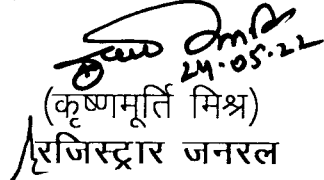 24.05.22
(कृष्णमूर्ति मिश्र)
रजिस्ट्रार जनरल